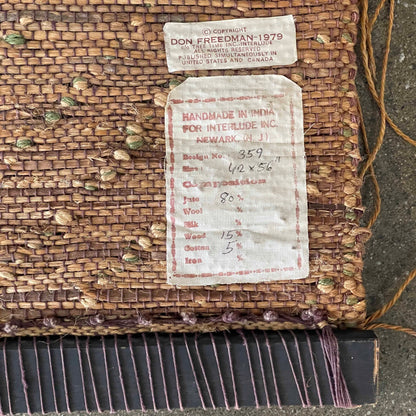 © COPYRIGHT
DON FREEDMAN-1979
C/O TREE TIME INC.-INTERLUDE
ALL RIGHTS RESERVED
PUBLISHED SIMULTANEOUSLY IN
UNITED STATES AND CANADA
HANDMADE IN INDIA
FOR INTERLUDE INC.
NEWARK, N.J.
Design No. 359
Size: 42 x 56"
Composition
Jute 80 %
Wool %
Silk %
Wood 15 %
Cotton 5 %
Iron %